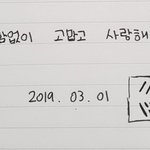 고맙고 사랑해
2019. 03. 01